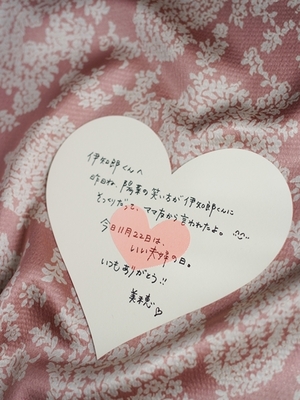 伊知郎くんへ
昨日ね、陽菜の笑い方が伊知郎くんに
そっくりだって、ママ友から言われたよ。
今日11月22日は、
いい夫婦の日。
いつもありがとう!!
美来恵♡